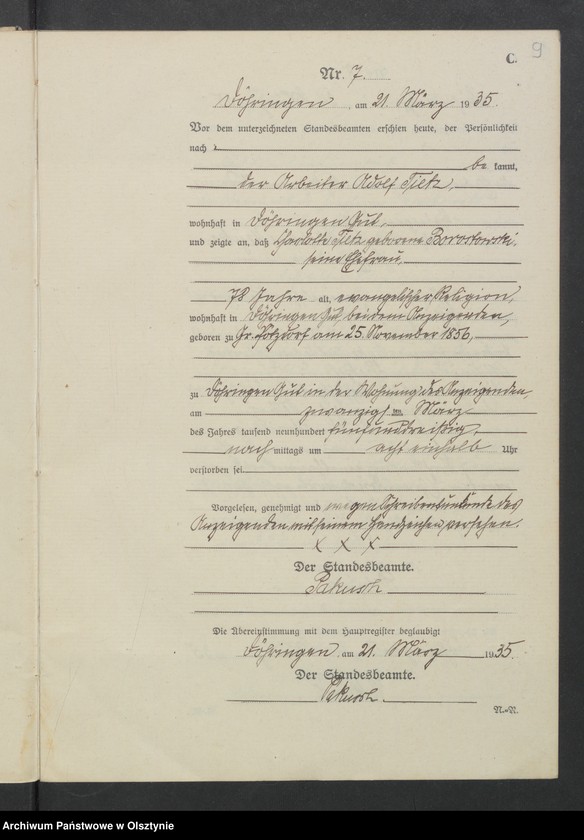 9
C.
Nr. 7.
Döhringen, am 21. März 1935.
Vor dem unterzeichneten Standesbeamten erschien heute, der Persönlichkeit
nach
be kannt,
der Arbeiter Adolf Tietz,
wohnhaft in Döhringen Gut,
und zeigte an, daß Charlotte Tietz geborene Borostowski,
seine Ehefrau,
78 Jahre alt, evangelischer Religion,
wohnhaft in Döhringen Gut, bei dem Anzeigenden,
geboren zu Gr. Pötzdorf am 25. November 1856,
zu Döhringen Gut in der Wohnung des Anzeigenden,
am zwanzigsten März
des Jahres tausend neunhundert fünfunddreißig,
nach mittags um acht einhalb Uhr
verstorben sei.
Vorgelesen, genehmigt und wegen Schreibensunkunde des
Anzeigenden mit seinem Handzeichen versehen.
X X X
Der Standesbeamte.
Pakusch
Die Übereinstimmung mit dem Hauptregister beglaubigt
Döhringen, am 21. März 1935.
Der Standesbeamte.
Pakusch.
N.-N.
Archiwum Państwowe w Olsztynie